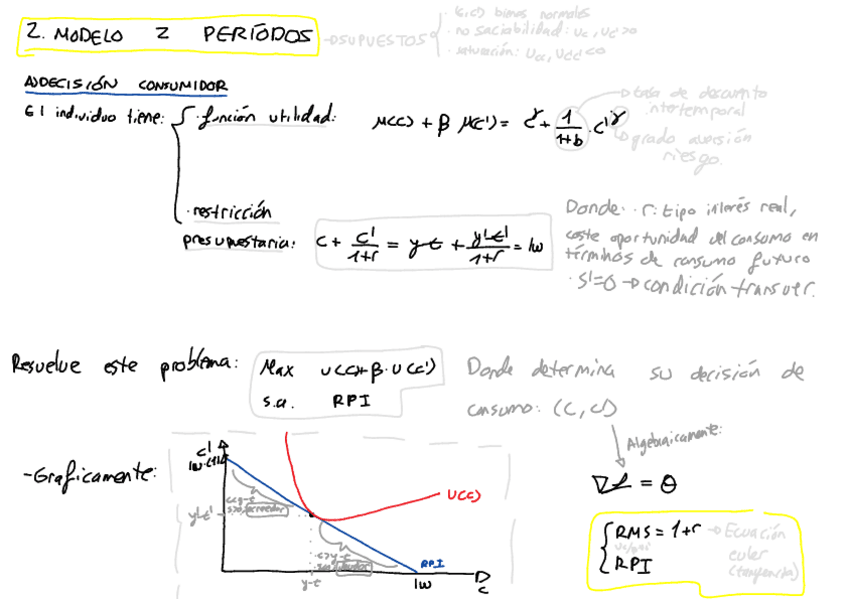 2. MODELO 2 PERÍODOS
→ SUPUESTOS
· (c,c') bienes normales
· no saciabilidad: Uc, Uc' > 0
· saturación: Ucc, Uc'c' < 0
A) DECISIÓN CONSUMIDOR
El individuo tiene:
· función utilidad: μ(c) + β μ(c') = c^γ + 1/(1+b) · c'^γ
→ tasa de descuento
intertemporal
→ grado aversión
riesgo.
· restricción
presupuestaria: c + c'/(1+r) = y-t + (y'-t')/(1+r) = lw
Donde: · r: tipo interés real,
coste oportunidad del consumo en
términos de consumo futuro
· S'=0 → condición transver.
Resuelve este problema:
Max U(c)+β·U(c')
s.a. RPI
Donde determina su decisión de
consumo: (c, c')
Algebraicamente:
∇L = θ
RMS = 1+r → Ecuación
euler
(tangencia)
RPI
-Graficamente:
c'
lw·(1+r)
c<y-t
s>0, acreedor
y'-t'
U(c)
c>y-t
RPI
y-t
lw
c